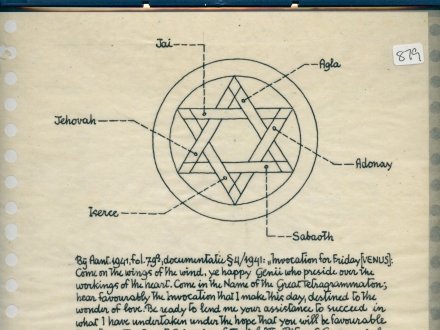 Jai
Agla
879
Jehovah
Adonay
Iserce
Sabaoth
By Aant. 1941, fol. 79ᵍ, documentatie § 4/1941: „Invocation for Friday [VENUS]:
Come on the wings of the wind, ye happy Genii who preside over the
workings of the heart. Come in the Name of the Great Tetragrammaton;
hear favourably the Invocation that I make this day, destined to the
wonder of love. Be ready to lend me your assistance to succeed in
what I have undertaken under the hope that you will be favourable